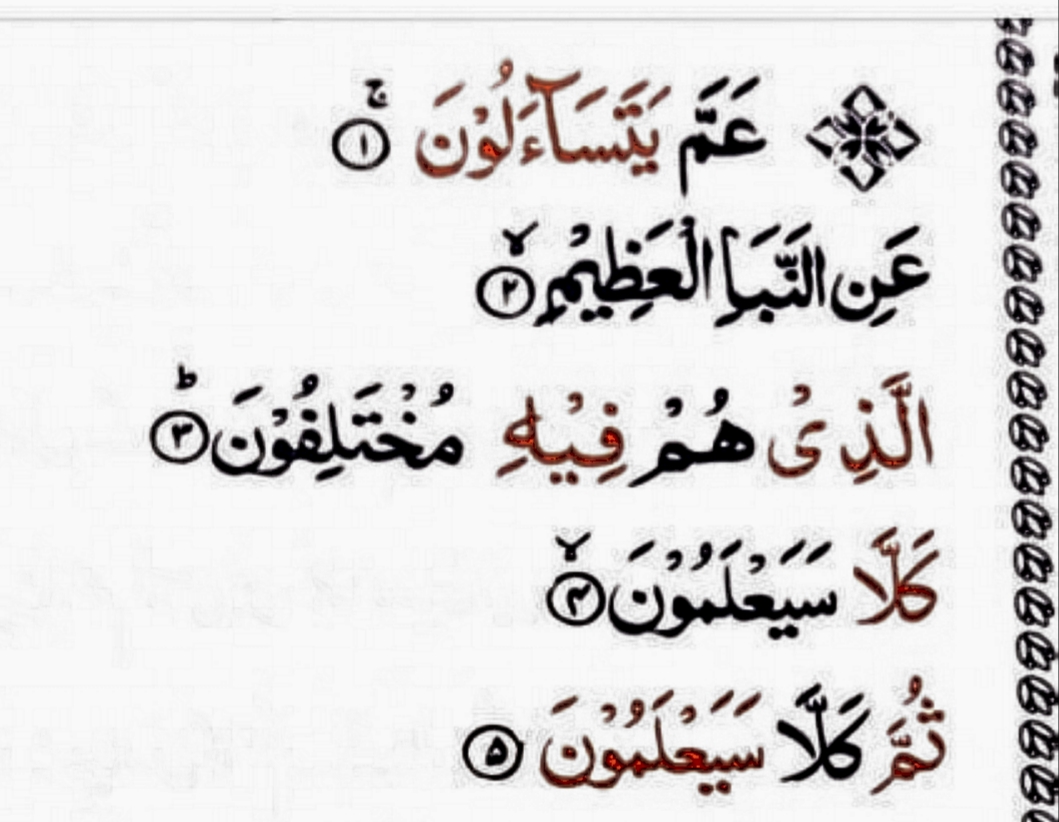 عَمَّ يَتَسَآءَلُوْنَ ۚ ۝١
عَنِ النَّبَاِ الْعَظِيْمِ ۙ ۝٢
الَّذِىْ هُمْ فِيْهِ مُخْتَلِفُوْنَ ؕ ۝٣
كَلَّا سَيَعْلَمُوْنَ ۙ ۝٤
ثُمَّ كَلَّا سَيَعْلَمُوْنَ ۝٥